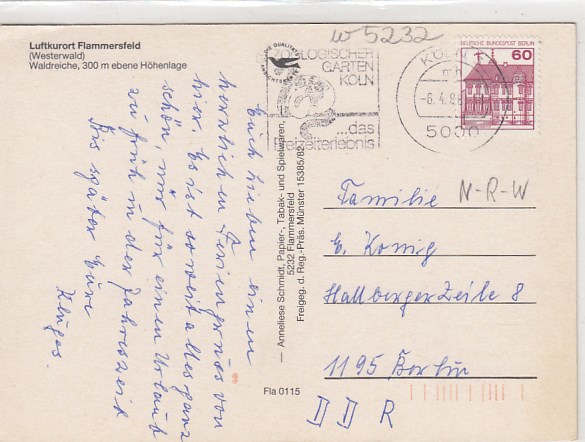 w 5232
Luftkurort Flammersfeld
(Westerwald)
Waldreiche, 300 m ebene Höhenlage
ZOOLOGISCHER
GARTEN
KÖLN
...das
Freizeiterlebnis
KÖLN
-6.4.8
5000
DEUTSCHE BUNDESPOST BERLIN
60
Euch Lieben einen
herzlichen Feriengruß von
hier. Es ist soweit alles ganz
schön, nur für einen Urlaub
zu früh in der Jahreszeit
Bis später Eure
Kluges.
Anneliese Schmidt, Papier-, Tabak- und Spielwaren,
5232 Flammersfeld
Freigeg. d. Reg.-Präs. Münster 15385/82
Familie
N-R-W
E. König
Hallberger Zeile 8
1195 Berlin
DDR
Fla 0115